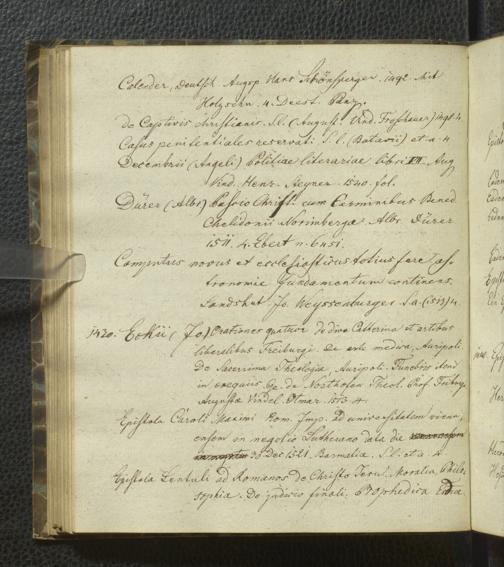 Calender, Deutsch. Augsp. Hans Schönsperger. 1492. Mit
Holzschn. 4. Deest. Panz.
de Captivis christianis. S.l. (August. Vind. Froschauer) 4
Casus penitentiales reservati. S. l. (Batavii) et a. 4
Decembrii (Angeli) Politiae literariae libri VII. Aug
Vind. Henr. Steyner. 1540. fol.
Dürer (Albr.) Passio Christi cum Carminibus Bened
Chelidonii Norimbergae Albr. Dürer
1511. 4. Ebert n. 6451.
Computus novus et ecclesiasticus totius fere as,
tronomie fundamentum continens.
Landshut Jo. Weyssenburger S. a. (1513) 4.
1420. Eckii (Jo.) Orationes quatuor de diva Catherina et artibus
liberalibus Freiburgi. De arte medica, Auripoli.
De Sacerrima Theologia, Auripoli. Funebris
in exequiis Ge. de Northofen Theol. Prof. Freiburg.
Augustae Vindel. Otmar. 1513. 4.
Epistola Caroli Maximi Rom. Imp. ad universitatem vienn,
ensem in negotio Lutherano data die
30 Dec 1521. S. l. et a. 4.
Epistola Lentuli ad Romanos de Christo Jesu. Moralia, Philo,
sophia. De judicio finali. Prophetica
1420.